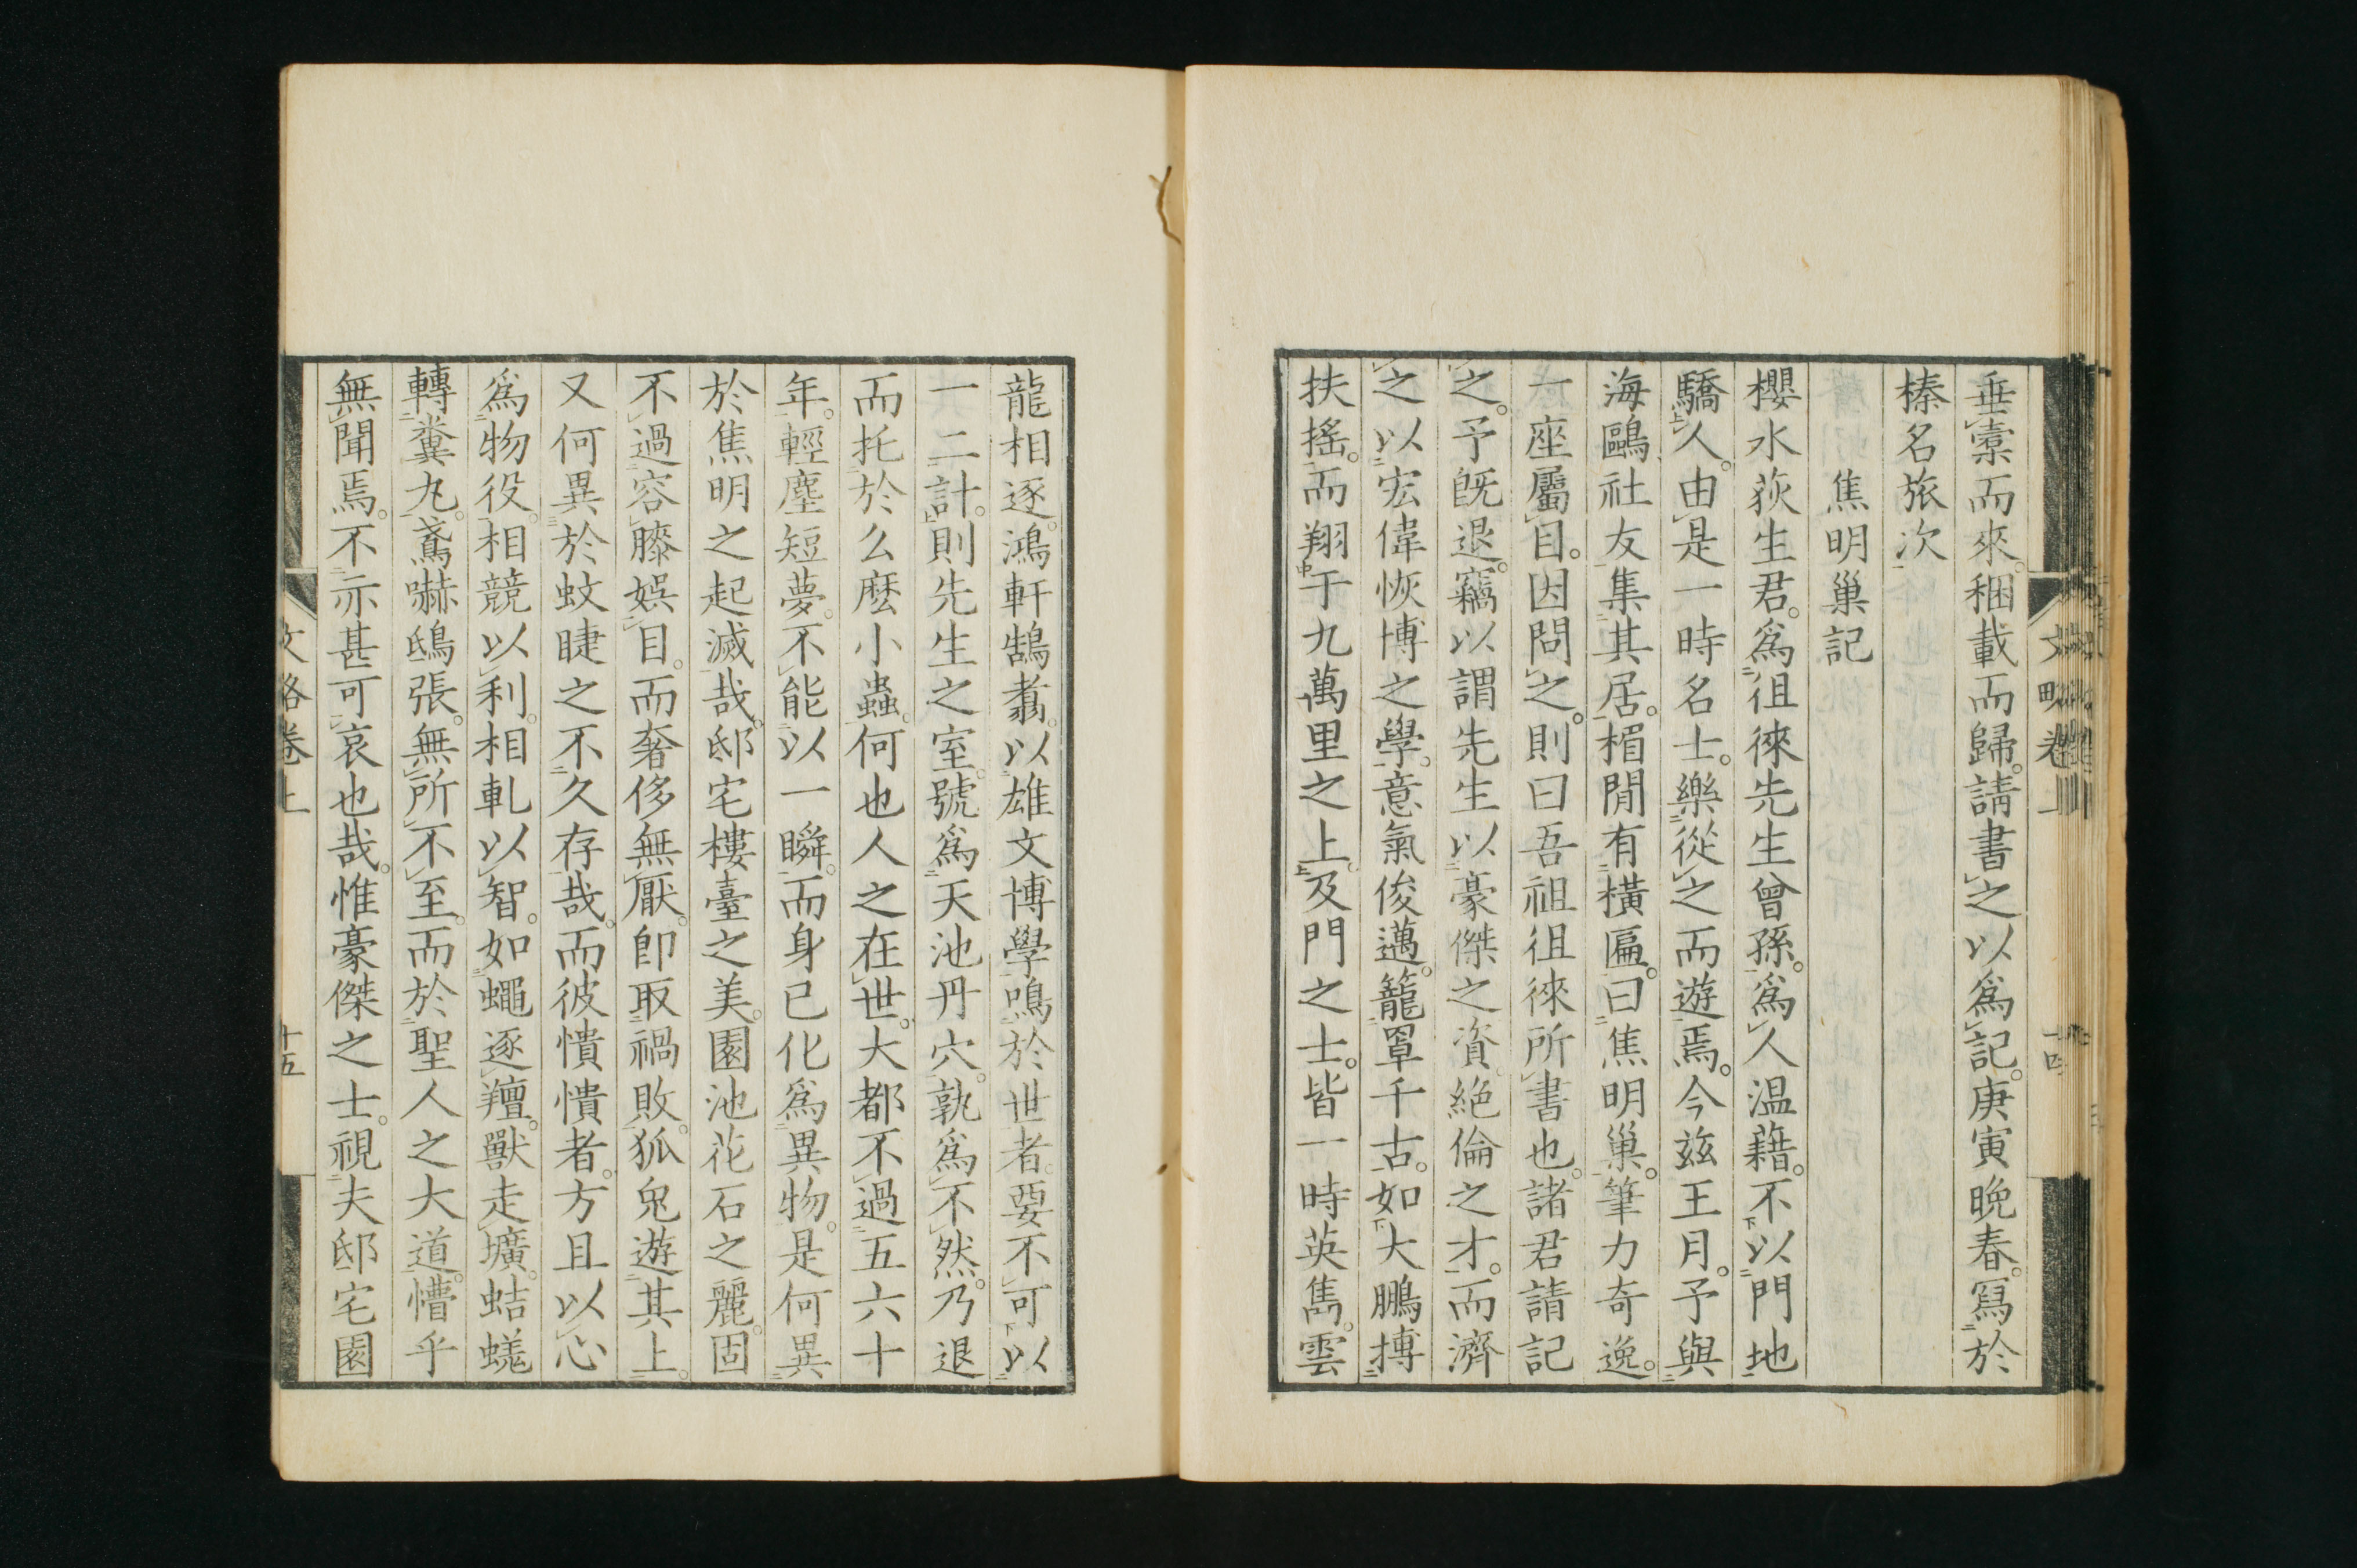 垂橐而來。稛載而歸。請書之以爲記。庚寅晩春。寫於
榛名旅次
焦明巢記
櫻水荻生君。爲徂徠先生曾孫。爲人温藉。不以門地
驕人。由是一時名士。樂從之而遊焉。今玆王月。予與
海鷗社友集其居。楣間有橫匾。曰焦明巢。筆力奇逸。
一座屬目。因問之。則曰吾祖徂徠所書也。諸君請記
之。予旣退。竊以謂先生以豪傑之資。絶倫之才。而濟
之以宏偉恢博之學。意氣俊邁。籠罩千古。如大鵬搏
扶搖。而翔于九萬里之上。及門之士。皆一時英雋。雲
文略卷上
十四
龍相逐。鴻軒鵠翥。以雄文博學鳴於世者。要不可以
一二計。則先生之室。號爲天池丹穴。孰爲不然。乃退
而托於么麽小蟲。何也人之在世。大都不過五六十
年。輕塵短夢。不能以一瞬。而身已化爲異物。是何異
於焦明之起滅哉。邸宅樓臺之美。園池花石之麗。固
不過容膝娯目。而奢侈無厭。卽取禍敗。狐兔遊其上。
又何異於蚊睫之不久存哉。而彼憒憒者。方且以心
爲物役。相競以利。相軋以智。如蠅逐羶。獸走壙。蛣蜣
轉糞丸。鳶嚇鴟張。無所不至。而於聖人之大道。懵乎
無聞焉。不亦甚可哀也哉。惟豪傑之士。視夫邸宅園
文略卷上
十五